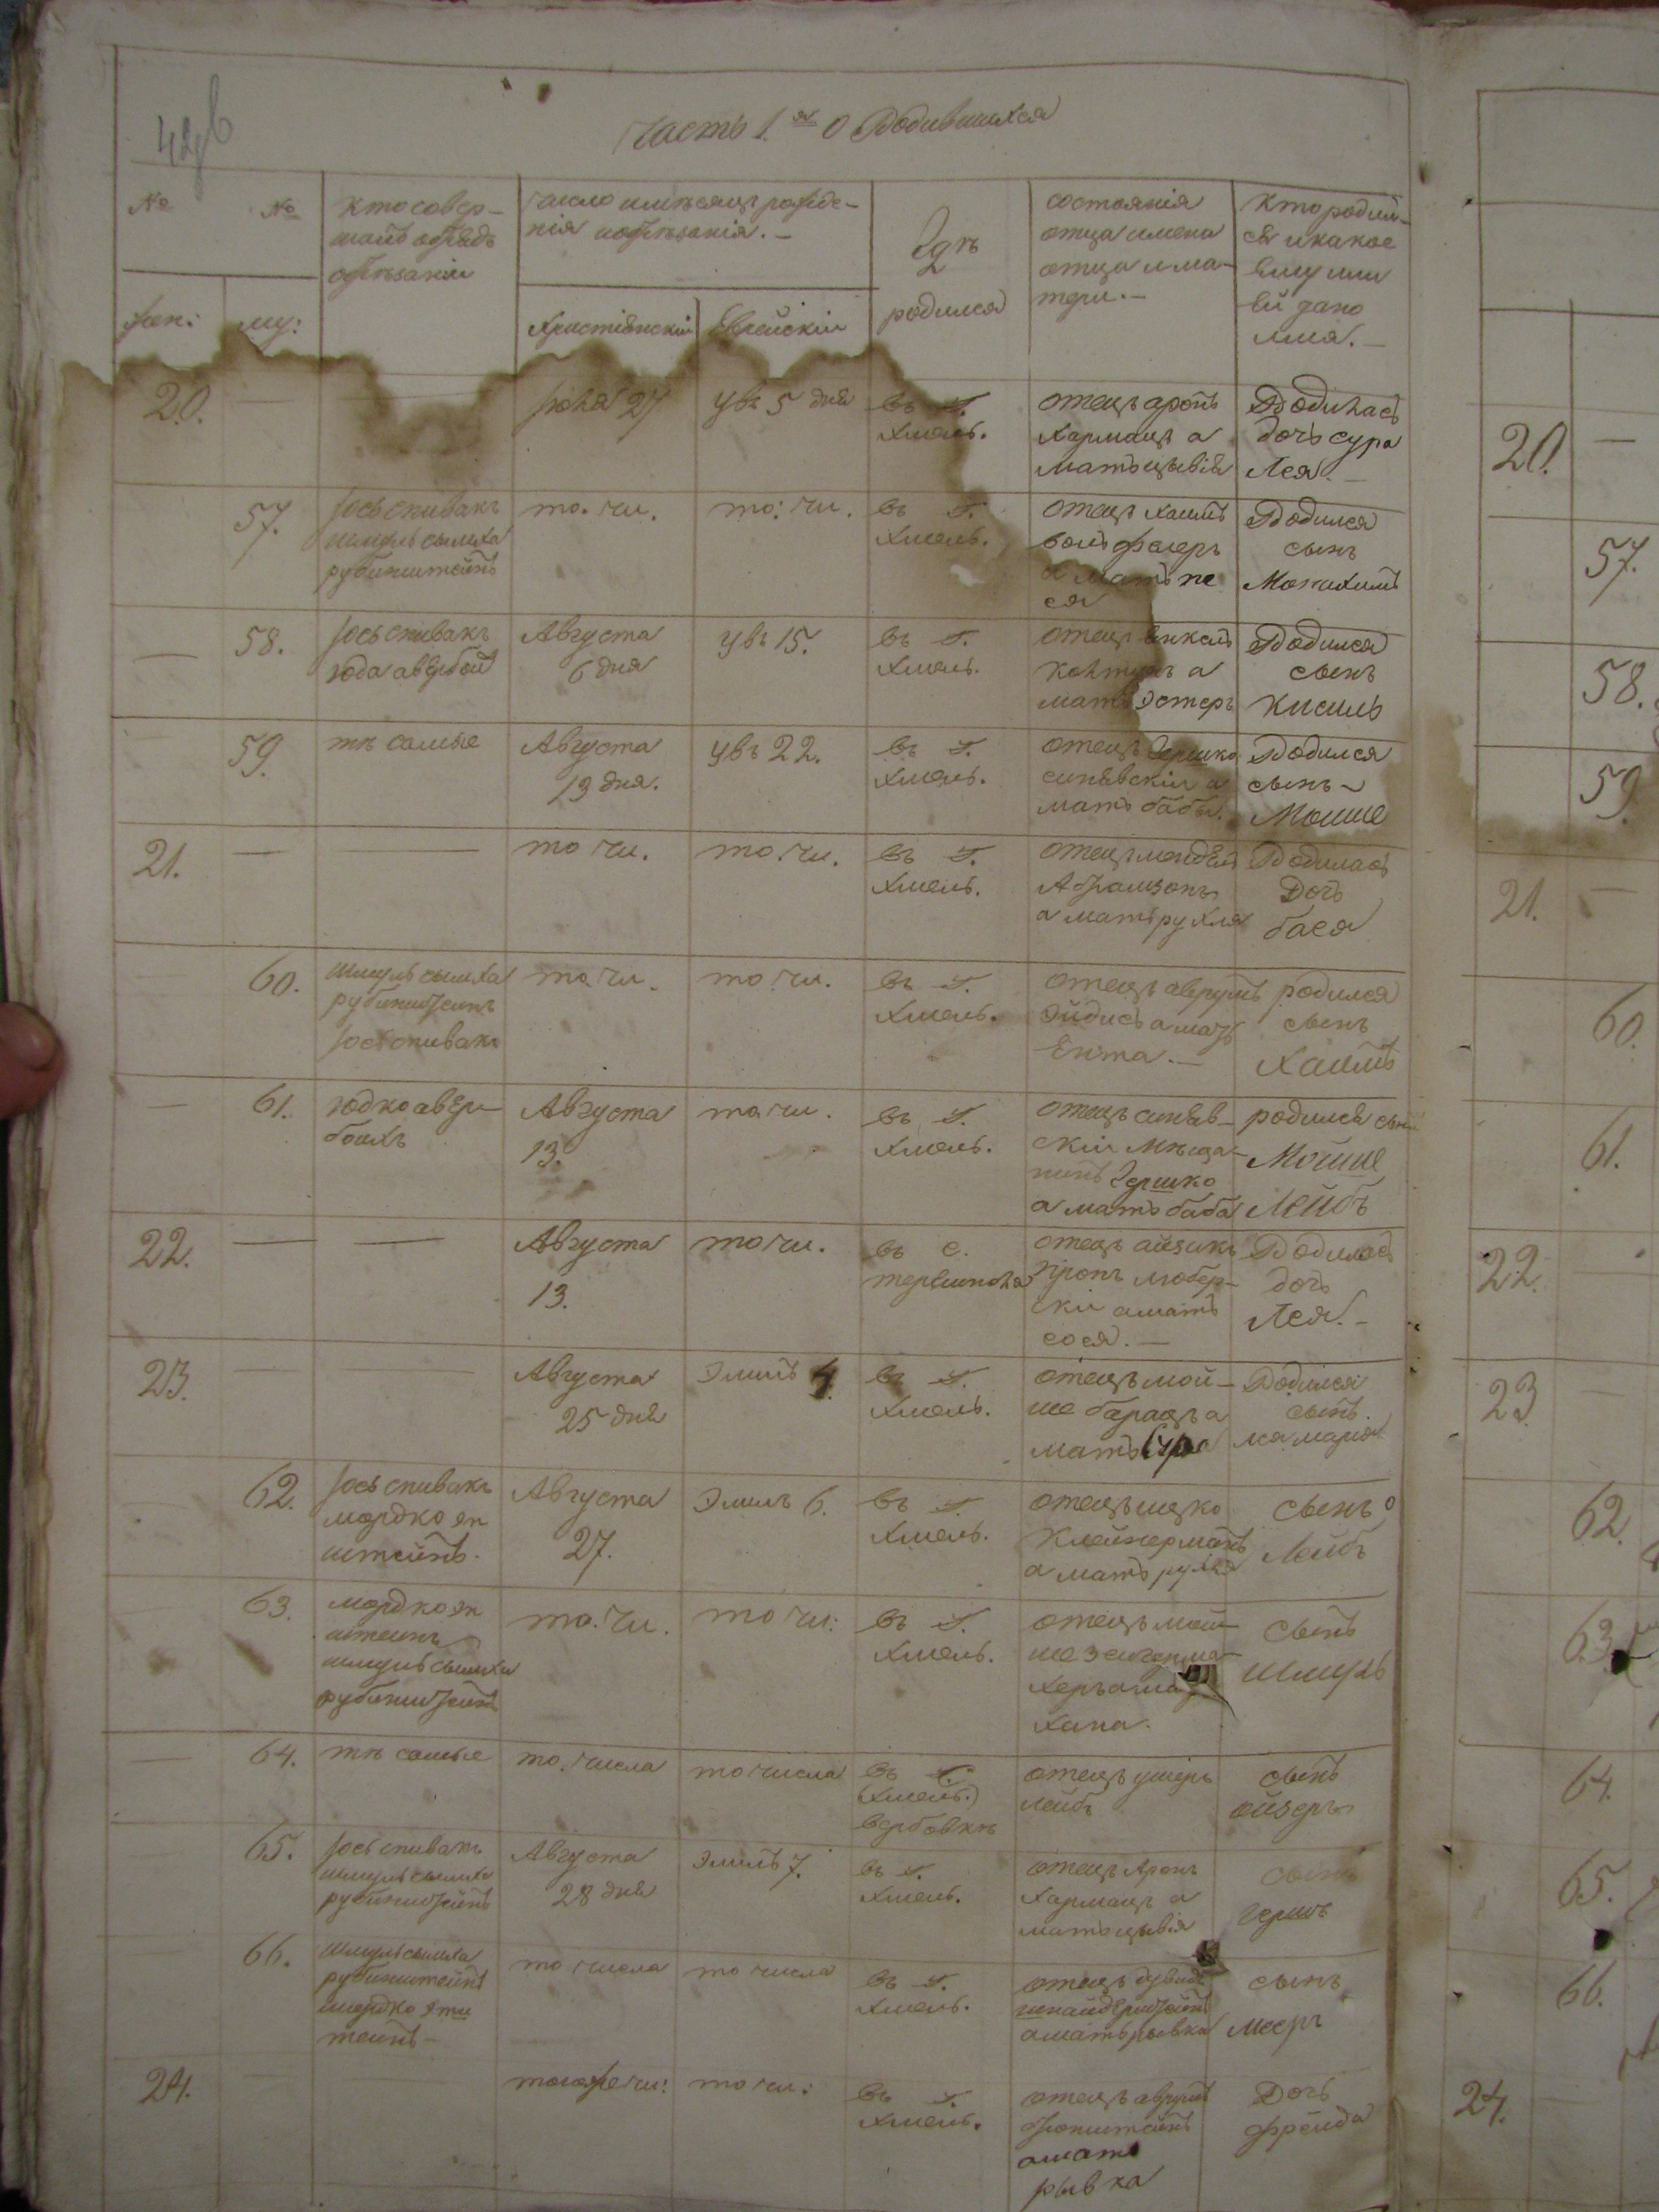 42 в
Часть 1.ая О Родившихся
№ №
жен: му:
Кто совер-
шалъ обрядъ
обрезанія
Число и месяцъ рожде-
нія и обрезанія.-
Христіянскій Еврейскій
Где
родился
состоянія
отца имена
отца и ма-
тери.-
Кто родил-
ся и какое
ему или
ей дано
имя.-
20. — іюля 27 увъ 5 дня
въ г.
Хмель.
отецъ аронъ
Хармацъ а
мать цывія
Родилась
дочь сура
Лея.-
57.
Іось спивакъ
шмуль сымха
рубинштейнъ
то. чи. то: чи.
въ г.
Хмель.
отецъ Хаимъ
а мать пе
ся
Родился
сынъ
Монахимъ
— 58.
Іось спивакъ
юда авербой
Августа
6 дня
увъ 15.
въ г.
Хмель.
отецъ
а
мать Эстеръ
Родился
сынъ
Кисиль
59. те самые
Августа
13 дня.
увъ 22.
въ г.
Хмель.
отецъ Гершко
синявскій а
мать баба.
Родился
сынъ -
Мошше
21. — — то чи. то. чи.
въ г.
Хмель.
отецъ мендель
Абрамзонъ
а мать рухля
Родилась
Дочь
бася
60.
шмуль сымха
рубинштеинъ
Іось спивакъ
то. чи. то. чи.
въ г.
Хмель.
отецъ аврумъ
Эйдись а мать
Ента.-
родился
сынъ
Хаимъ
— 61.
юдко авер-
бахъ
Августа
13.
то. чи.
въ г.
Хмель.
отецъ синяв-
скій меща-
нинъ Гершко
а мать баба
родился сынъ
Мошше
Лейбъ
22. — —
Августа
13.
то чи.
въ с.
отецъ айзикъ
скій а мать
сося.-
Родилась
дочь
Лея.-
23. — —
Августа
25 дня
Элиль 4.
въ г.
Хмель.
отецъ мой-
ше барацъ а
мать Сура
Родился
сынъ.
62.
Іось спивакъ
мордко эп
штейнъ.
Августа
27.
Элиль 6.
въ г.
Хмель.
отецъ ицко
Клейнерманъ
а мать рухля
сынъ
Лейбъ
63.
мордко эп
штеинъ
шмуль сымха
рубинштейнъ
то. чи. то чи:
въ г.
Хмель.
отецъ мой-
ше зейгерма-
херъ а мать
хана.
сынъ
шмуль
— 64. те самые то. числа то числа
въ г.
(Хмель.)
вербовке
отецъ ушеръ
лейбъ
сынъ
ойзеръ
65.
Іось спивакъ
шмуль сымха
рубинштейнъ
Августа
28 дня
Элиль 7.
въ г.
Хмель.
отецъ Аронъ
Хармацъ а
мать цывія
сынъ
гершъ
66.
шмуль сымха
рубинштейнъ
мордко эпш
теинъ -
то числа то числа
въ г.
Хмель.
отецъ дувидъ
шнайдерштейнъ
а мать рывка
сынъ
Мееръ
24. тогоже чи: то чи:
въ г.
Хмель.
отецъ аврумъ
бронштейнъ
а мать
рывка
Дочь
фрейда
20. —
57.
58.
59.
21. —
60.
61.
22. —
23 —
62.
63.
64.
65.
66.
24.